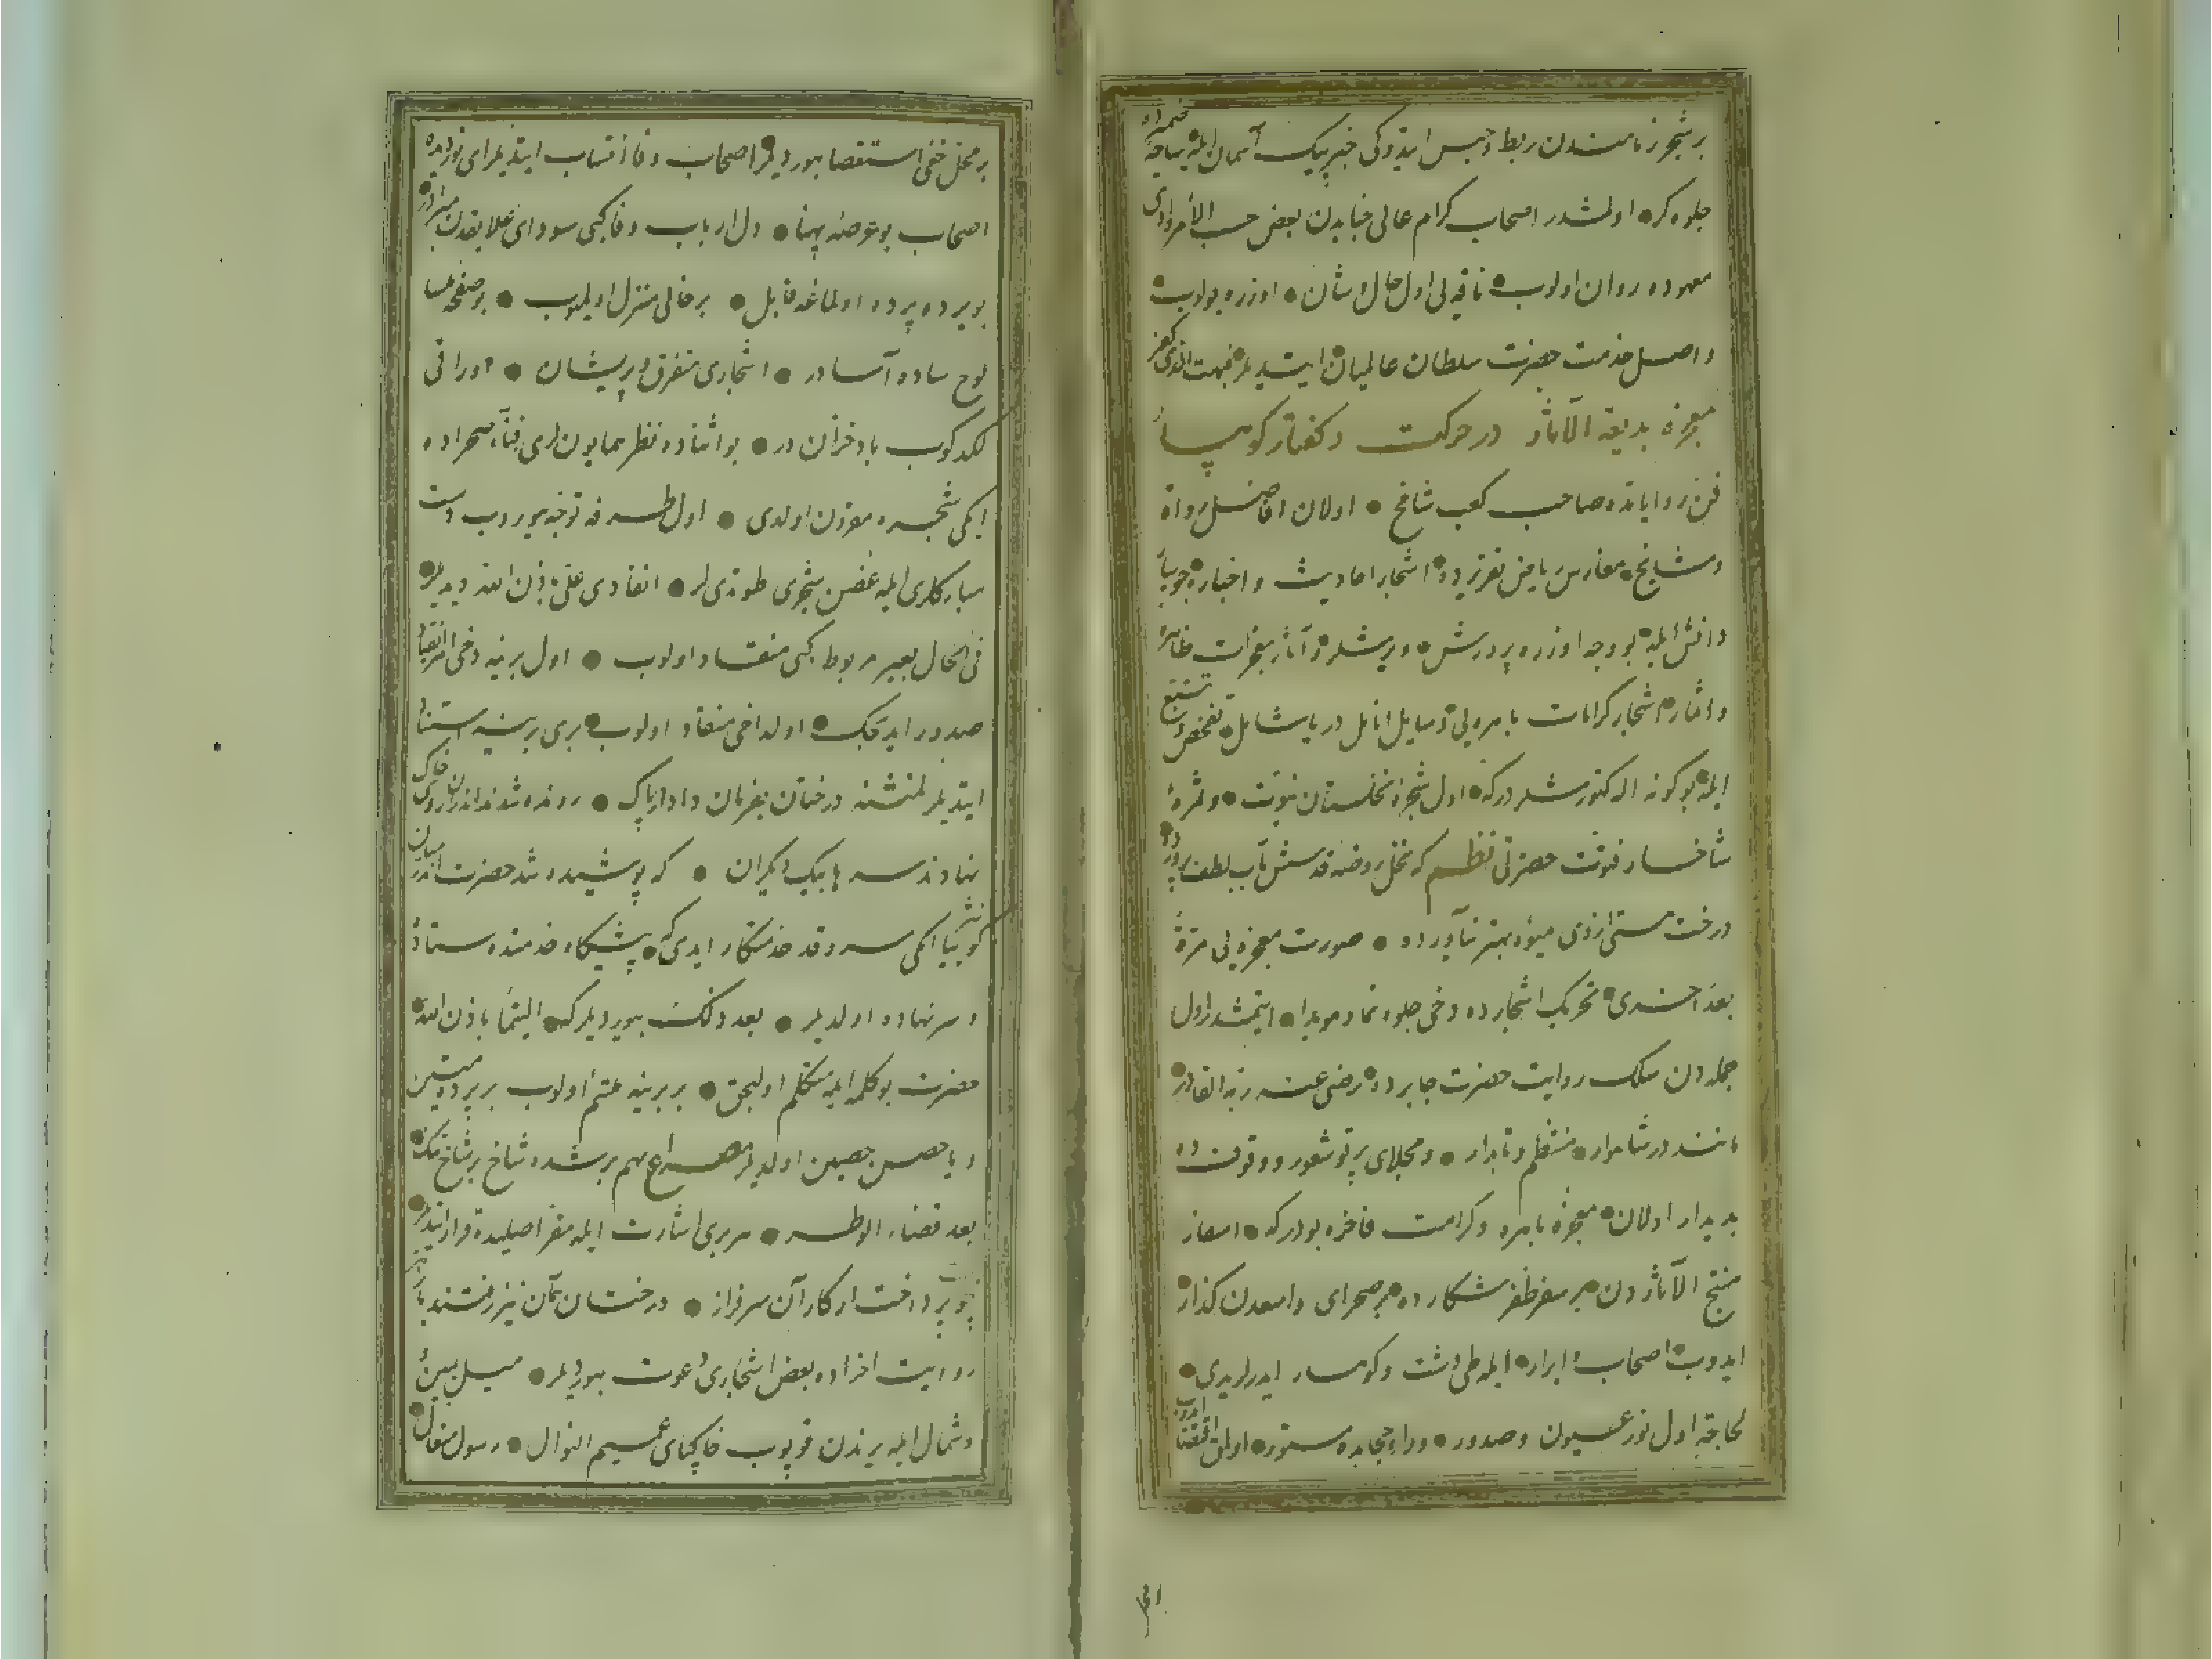 جلوه کر اولمشدر اصحاب کرام عالی جنابدن بعض حسب الأمر وادی
معهوده روان اولوب ناقه لی اول حال و شان اوزره بولوب
واصل خدمت حضرت سلطان عالمیان ایتدیلر
معجزهٔ بدیعة الآثار در حرکت و کفتار کوهسار
فن روایاتده صاحب کعب شامخ اولان افاضل رواة
ومشایخ مغارس ریاض تقریرده اشجار احادیث و اخباره جویبار
دانش ایله بو وجه اوزره پرورش ویرمشلر و آثار معجزات
واثمار اشجار کرامات
ایله بو کونه اله کتورمشلردرکه اول شجرهٔ نخلستان نبوت و ثمرهٔ
شاخسار فتوت حضرتی نظم که نخل روضهٔ قدسش بآب لطف
درخت مستی ازوی میوهٔ بهتر نیاورده صورت معجزه لی مرة
بعد اخری تحریک اشجارده دخی جلوه نما و هویدا ایتمشدر اول
جمله دن سلک روایت حضرت جابرده رضی عنه ربه القادر
مانند در شاهوار منتظم و تابدار ومجلای پرتو شعور و وقوفده
بدیدار اولان معجزهٔ باهره وکرامت فاخره بودرکه اسفار
منتج الآثاردن بر سفر ظفر شکارده بر صحرای واسعدن کذار
ایدوب اصحاب ابرار ایله طی دشت وکوهسار ایدرلریدی
لحاجة اول نور عیون وصدور وراء حجابده مستور اولمق
بر محل خفی استقصا بیوردیلر اصحاب وفا انتساب ایتدیلر ای نوردیده
اصحاب بو عرصهٔ پهنا دل ارباب وفا کبی سودای علایقدن
بویرده پرده اولماغه قابل بر خالی منزل اولمیوب بو صفحه
لوح ساده آسادر اشجاری متفرق و پریشان اوراقی
لکدکوب باد خزاندر بو اثناده نظر همایونلری فناء صحراده
ایکی شجره مقرون اولدی اول طرفه توجه بیوروب دست
مبارکلری ایله غصن شجری طوتدیلر انقادی علیّ باذن الله دیدیلر
فی الحال بعیر مربوط کبی منقاد اولوب اول برینه دخی امر انقیاد
صدور ایدیجک اولدخی منقاد اولوب بری برینه استناد
ایتدیلر لمنشئه درختان بفرمان دادار پاک
نهادند سرها بیک دیکران که پوشیده شد حضرت اندر میان
نثر کوییا ایکی سرو قد خدمتکار ایدی که پیشکاه خدمتده ستاده
وسر نهاده اولدیلر بعد ذلک بیوردیلر که التئما باذن الله
حضرت بو کلمه ایله متکلم اولیجق بر برینه ملتئم اولوب بر پردهٔ متین
ویا حصن حصین اولدیلر مصراع بهم بر شده شاخ بر شاخ تنک
بعد قضاء الوطر هر بری اشارت ایله مقر اصلیده قرار ایتدیلر
چو پرداخت از کار آن سرفراز درختان بمان نیز رفتند باز
روایت اخراده بعض اشجاری دعوت بیوردیلر
وشمال ایله یرندن قوپوب خاکپای عمیم النوال رسول متعال